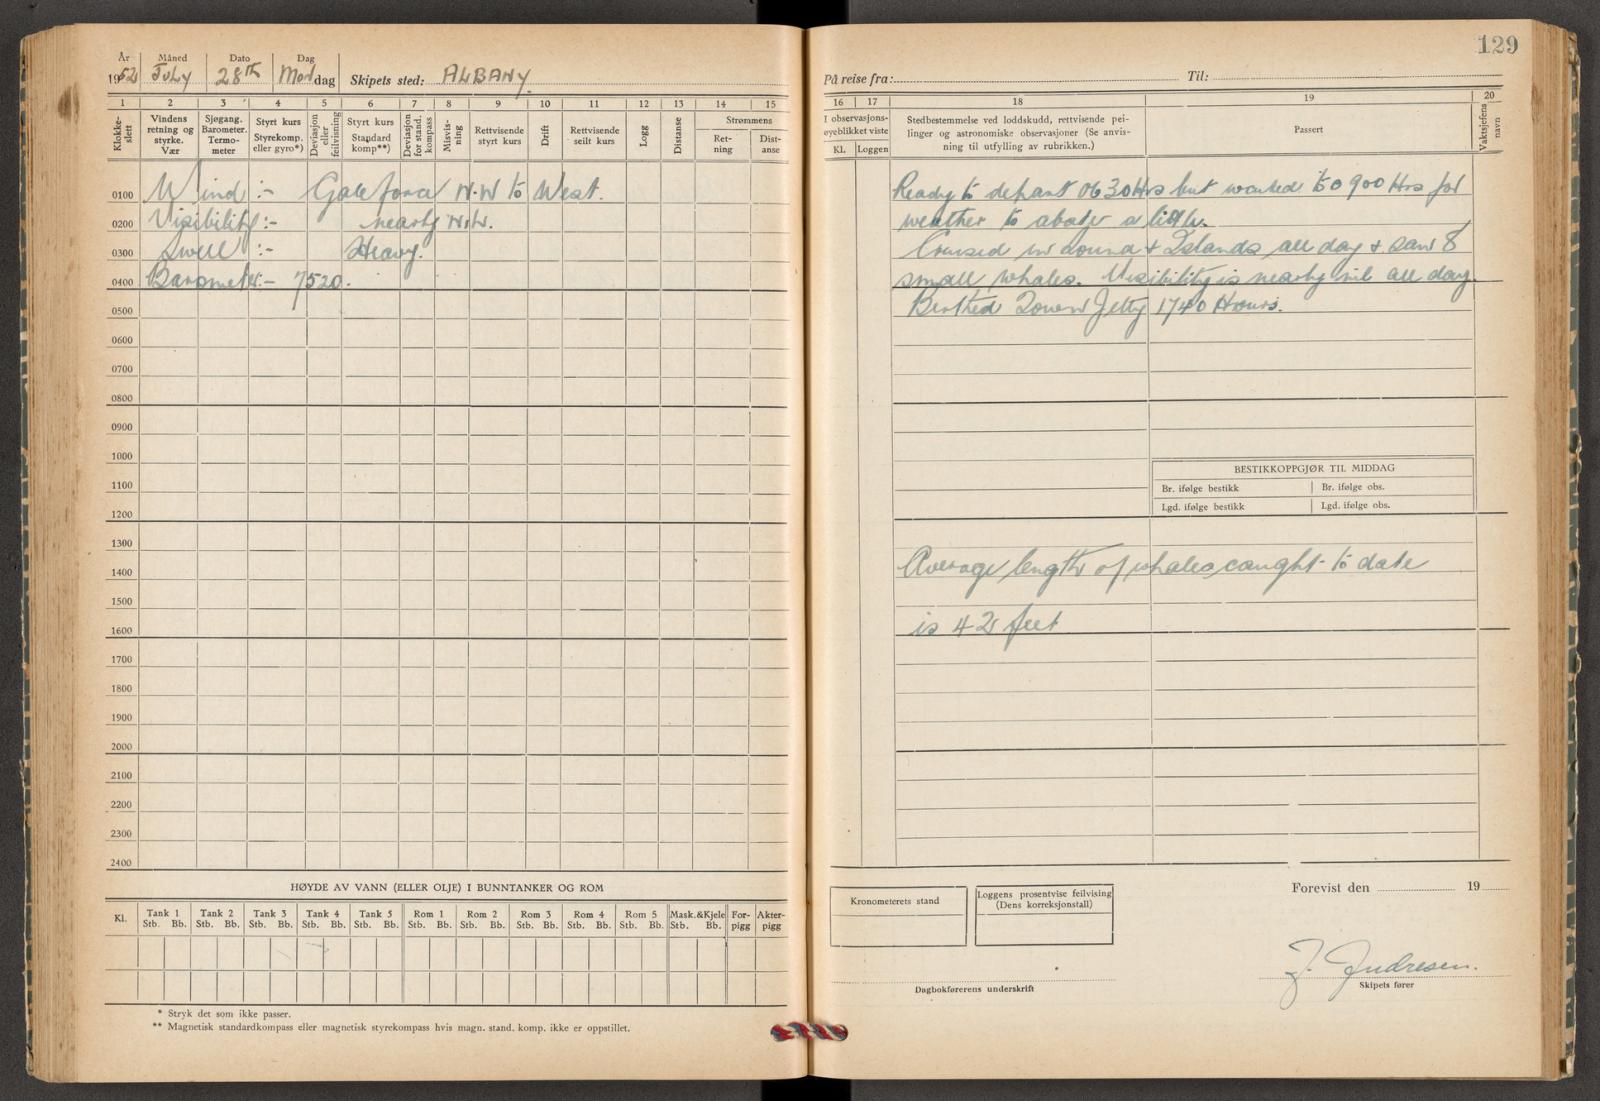 129
År Måned Dato Dag
1952 July 28th Mondag Skipets sted: ALBANY.
På reise fra: Til:
1 2 3 4 5 6 7 8 9 10 11 12 13 14 15
Klokke-slett
Vindens retning og styrke. Vær
Sjøgang. Barometer. Termo-meter
Styrt kurs Styrekomp. eller gyro*)
Deviasjon eller feilvisning
Styrt kurs Standard komp**)
Deviasjon for stand. kompass
Misvis-ning
Rettvisende styrt kurs
Drift
Rettvisende seilt kurs
Logg
Distanse
Strømmens
Ret-ning
Dist-anse
16 17 18 19 20
I observasjons-øyeblikket viste
Kl. Loggen
Stedbestemmelse ved loddskudd, rettvisende pei-
linger og astronomiske observasjoner (Se anvis-
ning til utfylling av rubrikken.)
Passert
Vaktsjefens navn
0100 Wind :- Gale force N.W to West.
0200 Visibility :- nearly N.W.
0300 Swell :- Heavy.
0400 Barometer:- 7520.
0500
0600
0700
0800
0900
1000
1100
1200
1300
1400
1500
1600
1700
1800
1900
2000
2100
2200
2300
2400
Ready to depart 0630Hrs but waited to 0900 Hrs for
weather to abate a little.
Cruised in Sound & Islands all day & saw 8
small whales. Visibility is nearly nil all day.
Berthed Town Jetty 1740 Hours.
BESTIKKOPPGJØR TIL MIDDAG
Br. ifølge bestikk Br. ifølge obs.
Lgd. ifølge bestikk Lgd. ifølge obs.
Average length of whales caught to date
is 42 feet
HØYDE AV VANN (ELLER OLJE) I BUNNTANKER OG ROM
Kl. Tank 1 Tank 2 Tank 3 Tank 4 Tank 5 Rom 1 Rom 2 Rom 3 Rom 4 Rom 5 Mask.&Kjele For-pigg Akter-pigg
Stb. Bb. Stb. Bb. Stb. Bb. Stb. Bb. Stb. Bb. Stb. Bb. Stb. Bb. Stb. Bb. Stb. Bb. Stb. Bb. Stb. Bb.
* Stryk det som ikke passer.
** Magnetisk standardkompass eller magnetisk styrekompass hvis magn. stand. komp. ikke er oppstillet.
Kronometerets stand
Loggens prosentvise feilvising
(Dens korreksjonstall)
Forevist den 19
Dagbokførerens underskrift
J. Andresen.
Skipets fører